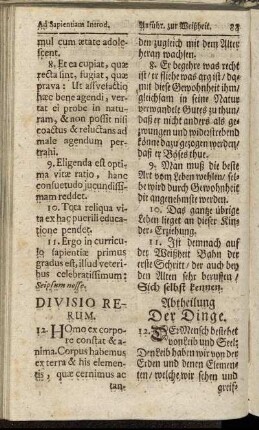 Ad Sapientiam Introd.
mul cum ætate adole-
scent.
8. Et ea cupiat, quæ
recta sint, fugiat, quæ
prava: Ut assvefactio
hæc bene agendi, ver-
tat ei probe in natu-
ram, & non possit nisi
coactus & reluctans ad
male agendum per-
trahi.
9. Eligenda est opti-
ma vitæ ratio, hanc
consuetudo jucundissi-
mam reddet.
10. Tota reliqua vi-
ta ex hac puerili educa-
tione pendet.
11. Ergo in curricu-
lo sapientiæ primus
gradus est, illud veteri-
bus celebratissimum:
Seipsum nosse.
DIVISIO RE-
RUM.
12. HOmo ex corpo-
re constat & a-
nima. Corpus habemus
ex terra & his elemen-
tis, quæ cernimus ac
tan-
Anführ. zur Weißheit. 83
den zugleich mit dem Alter
heran wachsen.
8. Er begehre was recht
ist: er fliehe was arg ist/ da-
mit diese Gewohnheit ihm/
gleichsam in seine Natur
verwandele Gutes zu thun/
daß er nicht anders als ge-
zwungen und widerstrebend
könne dazu gezogen werden/
daß er Böses thue.
9. Man muß die beste
Art vom Leben wehlen/ sel-
be wird durch Gewohnheit
die angenehmste werden.
10. Das gantze übrige
Leben lieget an dieser Kin-
der-Erziehung.
11. Ist demnach auf
der Weißheit Bahn der
erste Schritt/ der auch bey
den Alten sehr beruffen/
Sich selbst kennen.
Abtheilung
Der Dinge.
12. DEr Mensch bestehet
von Leib und Seel;
Den Leib haben wir von der
Erden und denen Elemen-
ten/ welche wir sehen und
greif-